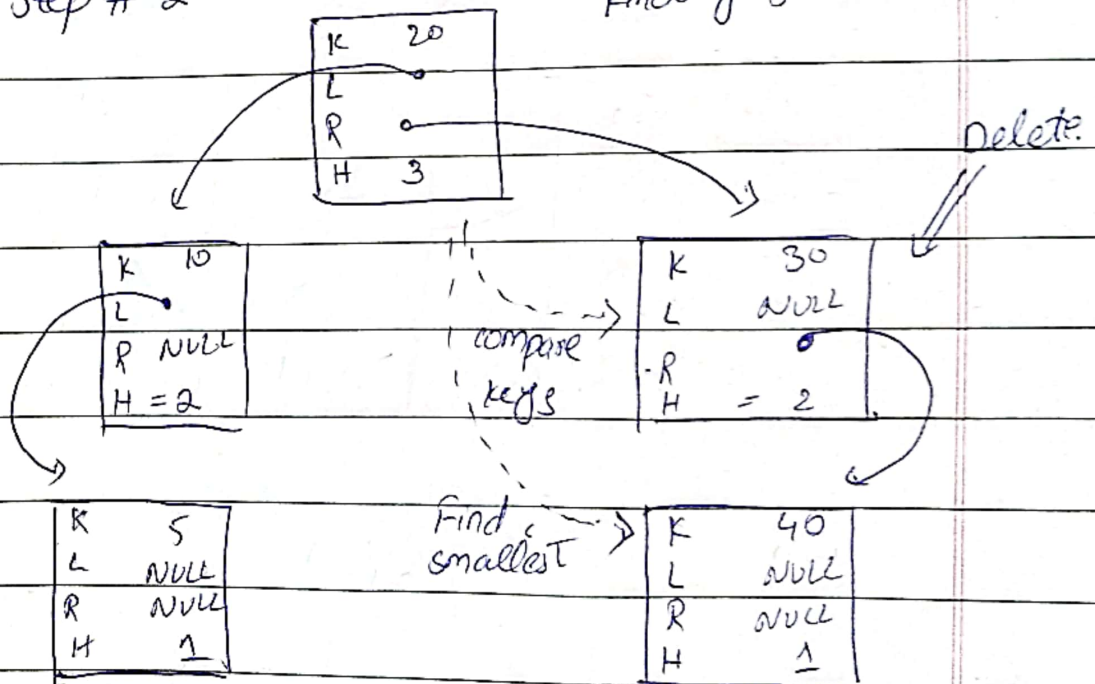 Step # 2
K 20
L
R
H 3
Delete.
K 10
L
R NULL
H = 2
compare
keys
K 30
L NULL
R
H = 2
K 5
L NULL
R NULL
H 1
Find
smallest
K 40
L NULL
R NULL
H 1